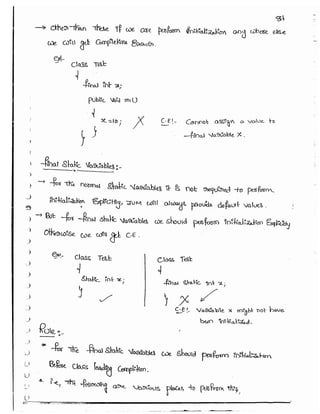 → other than these if we are perform initialization any where else
we will get Compiletime Error.
Eg:-
class Test
{
final int x;
public void m1()
{
x=10; X C.E:- Cannot assign a value to
final variable x.
}
}
final static variables:-
→ for the normal static variables it is not required to perform
initialization explicitly, JVM will always provide default values.
→ But for final static variables we should perform initialization Explicitly
Otherwise we will get C.E.
Eg:- class Test
{
static int x;
}
class Test
{
final static int x;
}
C.E:- variable x might not have
been initialized.
Rule:-
* for the final static variables we should perform initialization
Before class loading completion.
* i.e, the following are various places to perform this.